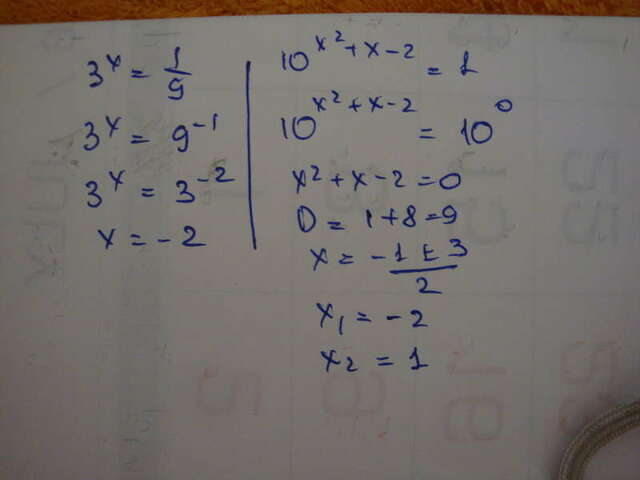 3^x = 1/9
3^x = 9^-1
3^x = 3^-2
x = -2
10^x²+x-2 = 1
10^x²+x-2 = 10^0
x²+x-2=0
D = 1+8=9
x = -1±3/2
x1 = -2
x2 = 1